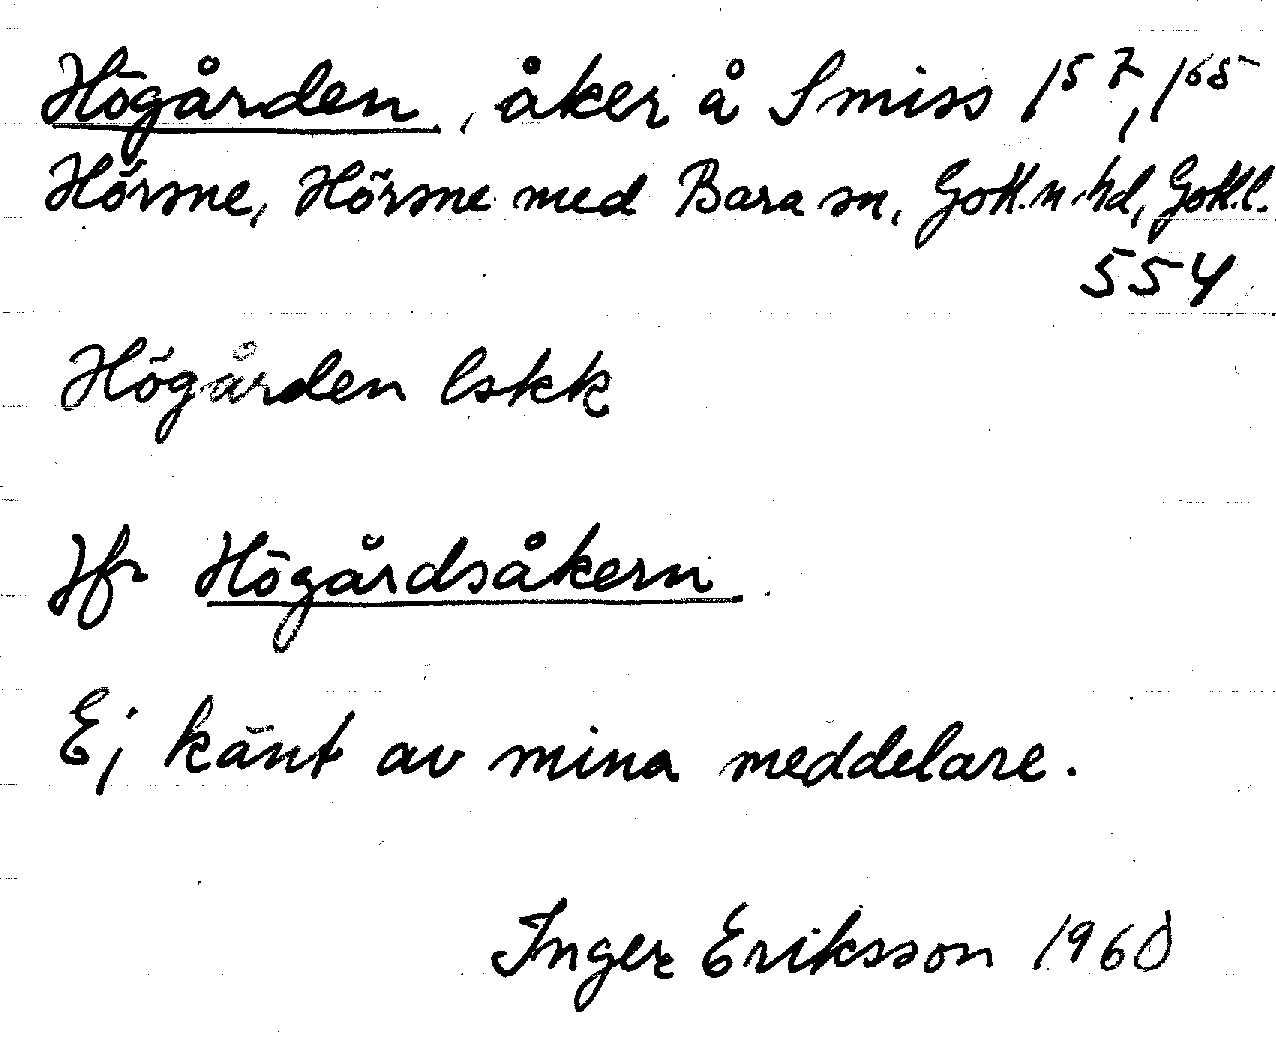 Högården, åker å Smiss 1⁵⁷, 1⁶⁸
Hörsne, Hörsne med Bara sn, Gotl.n.hd, Gotl.l.
554
Högården lskk
Jfr Högårdsåkern.
Ej känt av mina meddelare.
Inger Eriksson 1960